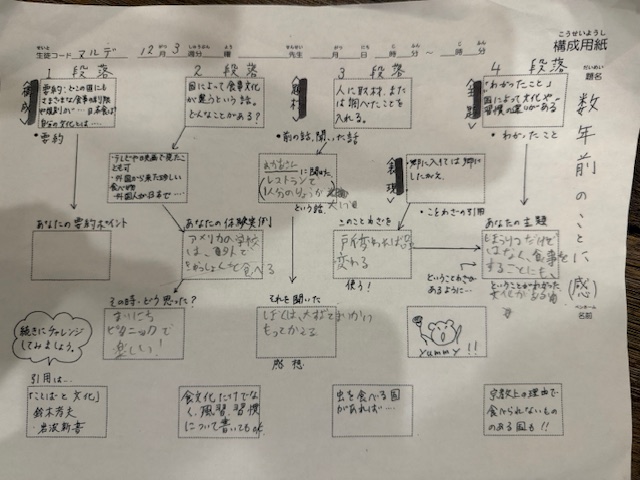 こうせいようし
構成用紙
生徒コード マルデ 12月3週分 先生 月 日 時 分 ~ 時 分
だいめい
題名
数年前のことに(感)
ペンネーム
名前
1 段落
2 段落
3 段落
4 段落
構成
題材
主題
表現
要約:どこの国にも
自分の文化とは……
・要約
国によって食事文化
が違うという話。
どんなことがある?
人に取材、また
は調べたことを
入れる。
「わかったこと」
国によって文化や
習慣の違いがある
・わかったこと
・前の話、聞いた話
・テレビや映画で見たこ
とも可
・外国から来た珍しい
食べ物
・外国人が日本で…
に聞いた
レストランで
1人分のりょうが
という話
郷に入ては郷に
したがえ。
・ことわざの引用
あなたの要約ポイント
あなたの体験実例
アメリカの学校
は、野外で
食べる
このことわざを
戸代変われば品
変わる
使う!
ということわざが
あるように…
あなたの主題
はなく、食事を
することにも、
ということがわかった
文化がある
その時、どう思った?
まいにち
ピクニックで
楽しい!
それを聞いた
ぼくは、
もってかえる
感想
yummy!!
続きにチャレンジ
してみましょう。
引用は…
「ことばと文化」
鈴木孝夫
・岩波新書
食文化だけでな
く、風習、習慣
について書いてもOK
虫を食べる国
があれば…
宗教上の理由で
食べられないもの
のある国も!!